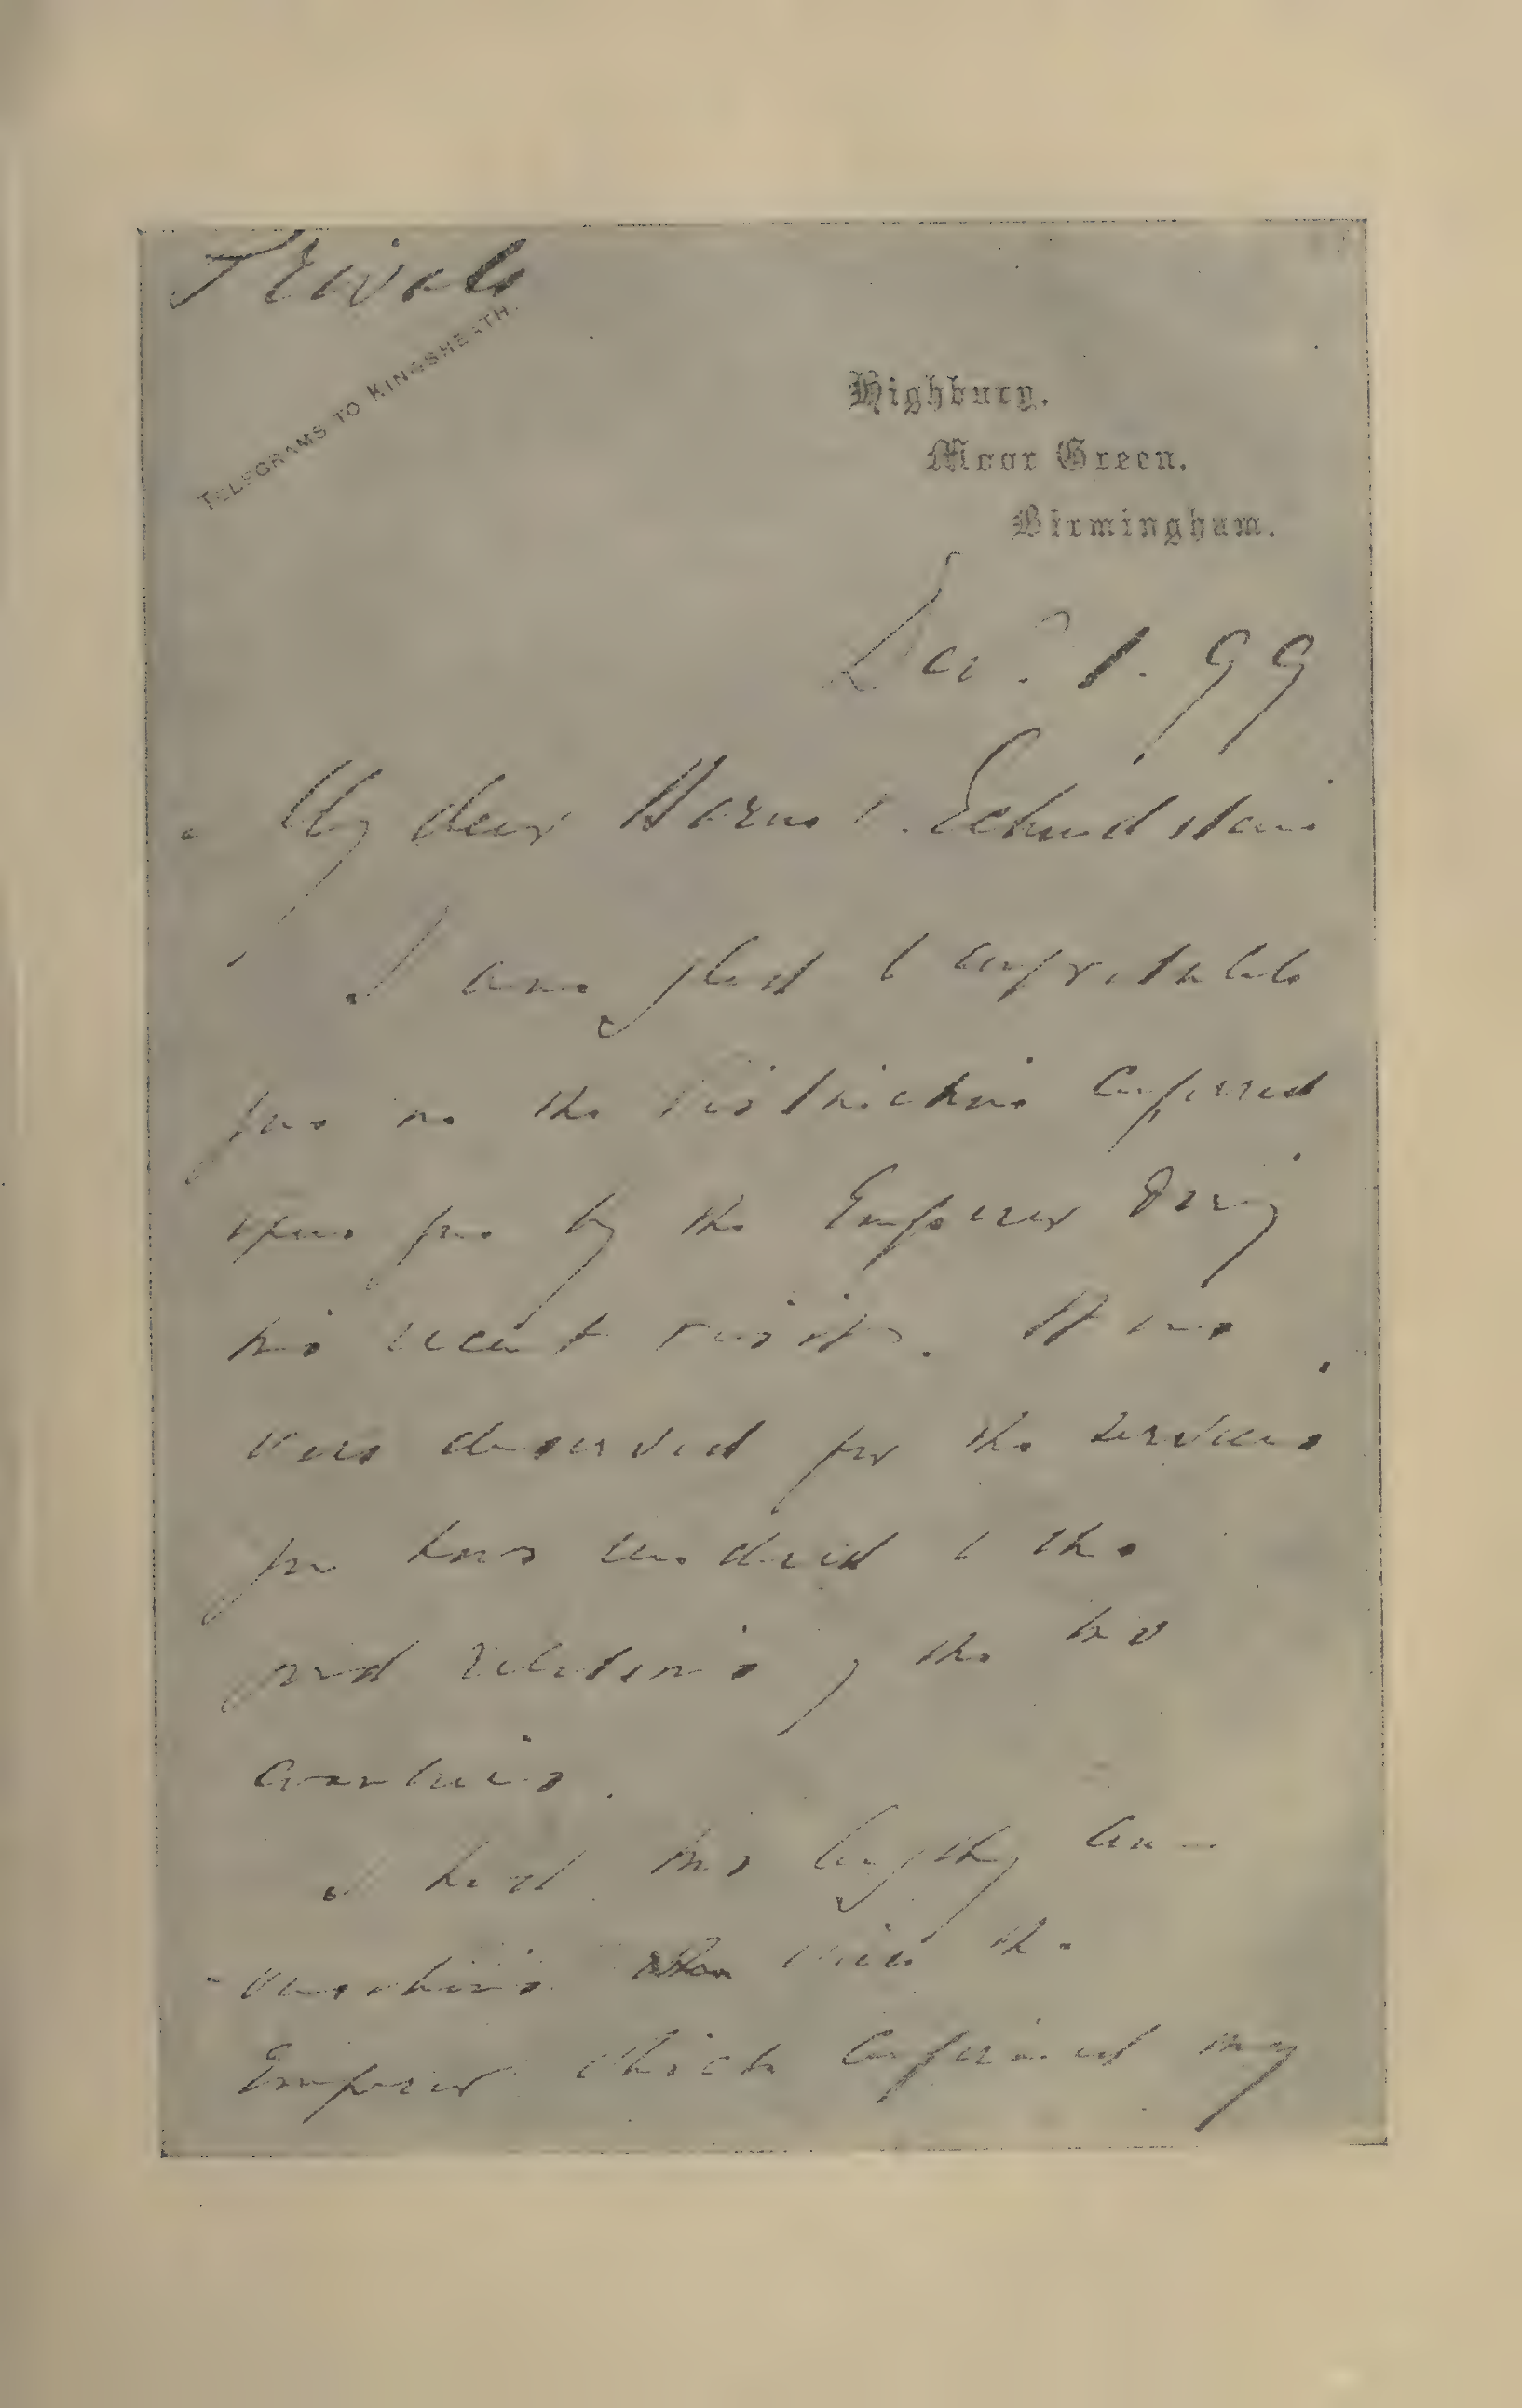 Private
TELEGRAMS TO KINGSHEATH.
Highbury.
Moor Green.
Birmingham.
Decr. 1. 99
My dear Baron v. Eckardstein
I am glad to congratulate
you on the distinction conferred
upon you by the Emperor during
his recent visit. It was
well deserved for the services
you have rendered to the
good relations of the two
countries.
I had two lengthy con-
versations with the
Emperor which confirmed my